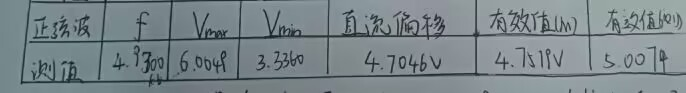 正弦波 f Vmax Vmin 直流偏移 有效值(M) 有效值
测值 4.9300 6.0049 3.3360 4.7046V 4.7519V 5.0074